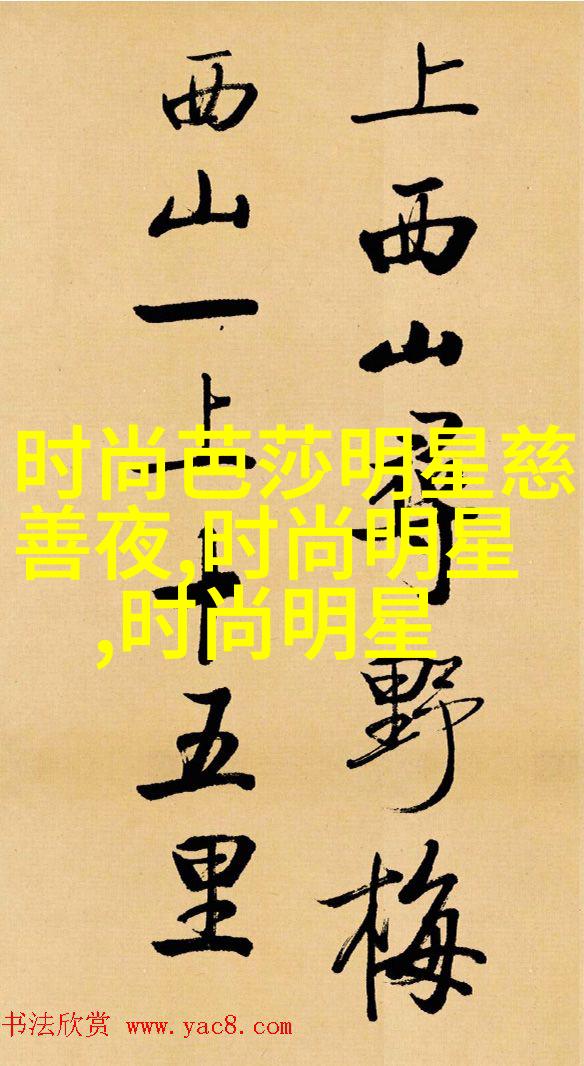 上西山尋野梅
西山一上十五里
时尚芭莎明星慈
善夜,时尚明星
,时尚明星
书法欣赏 www.yac8.com